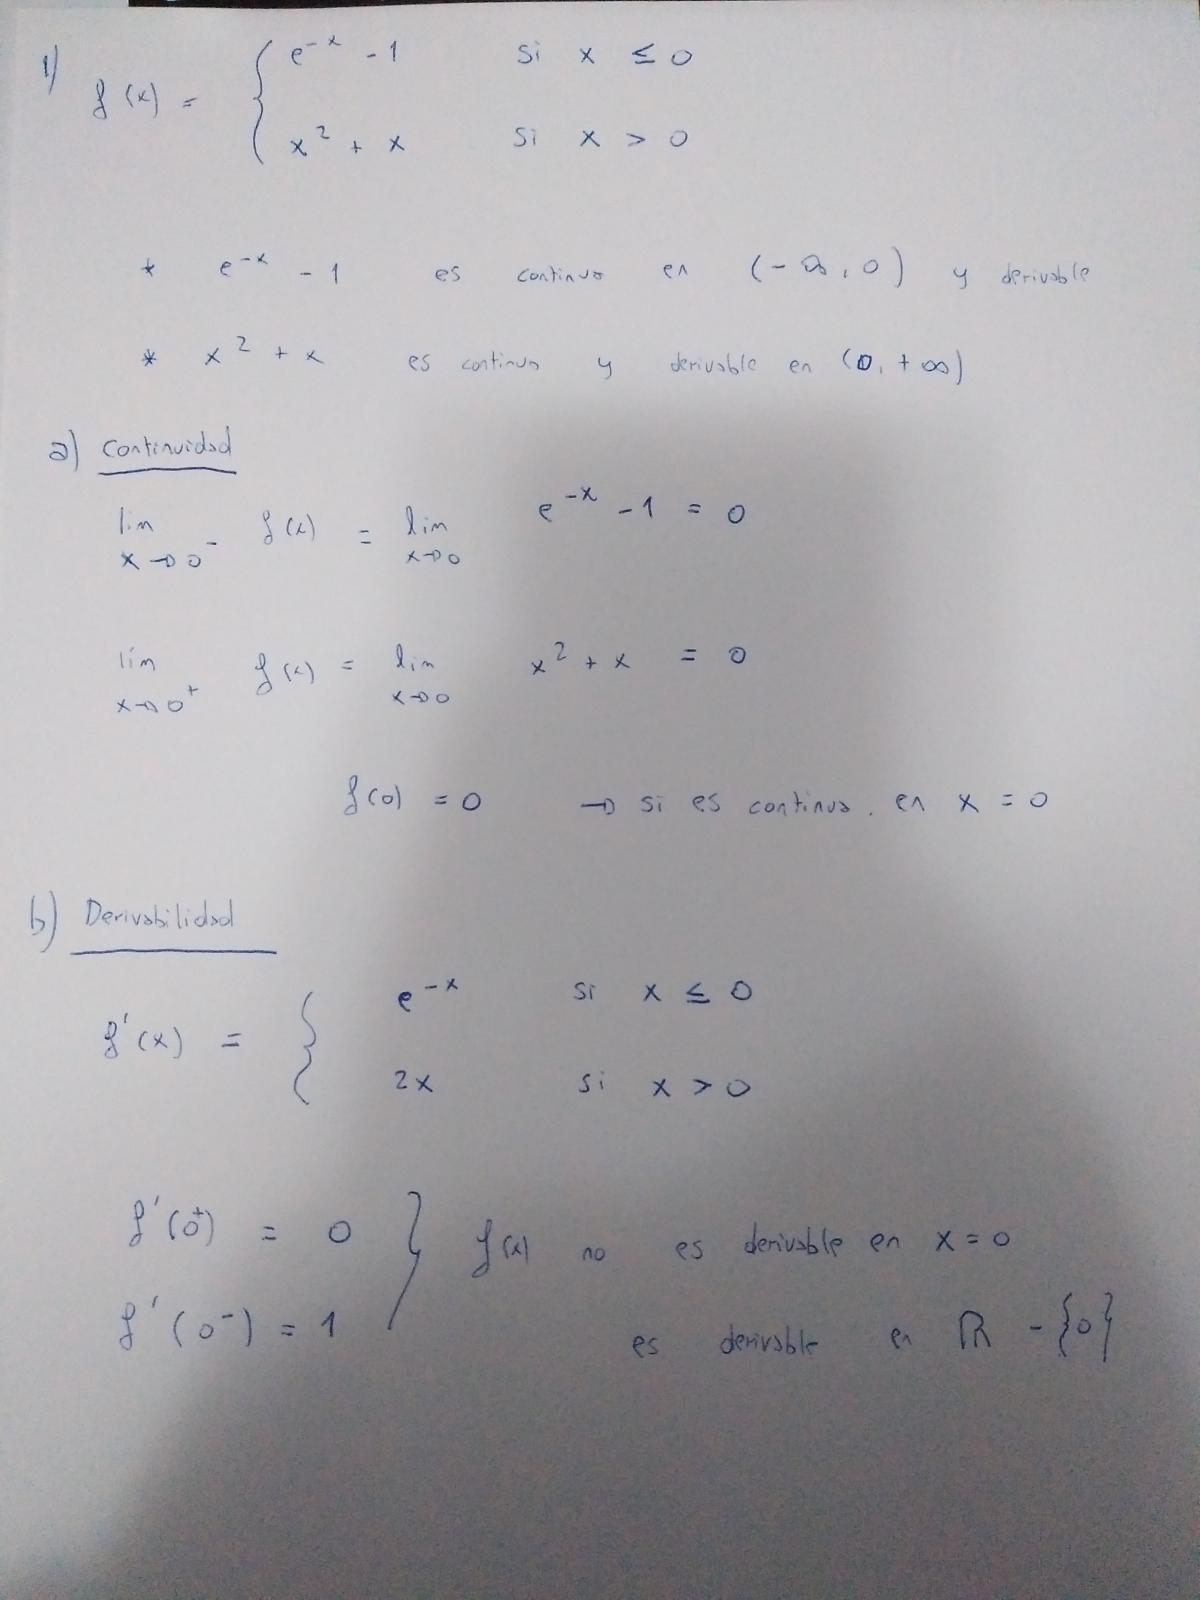 1) f(x) = { e^{-x} - 1 si x ≤ 0
x^2 + x si x > 0
* e^{-x} - 1 es continua en (-∞, 0) y derivable
* x^2 + x es continua y derivable en (0, +∞)
a) Continuidad
lim x→0^- f(x) = lim x→0 e^{-x} - 1 = 0
lim x→0^+ f(x) = lim x→0 x^2 + x = 0
f(0) = 0 → si es continua. en x = 0
b) Derivabilidad
f'(x) = { e^{-x} si x ≤ 0
2x si x > 0
f'(0^+) = 0 } f(x) no es derivable en x = 0
f'(0^-) = 1
es derivable en ℝ - {0}